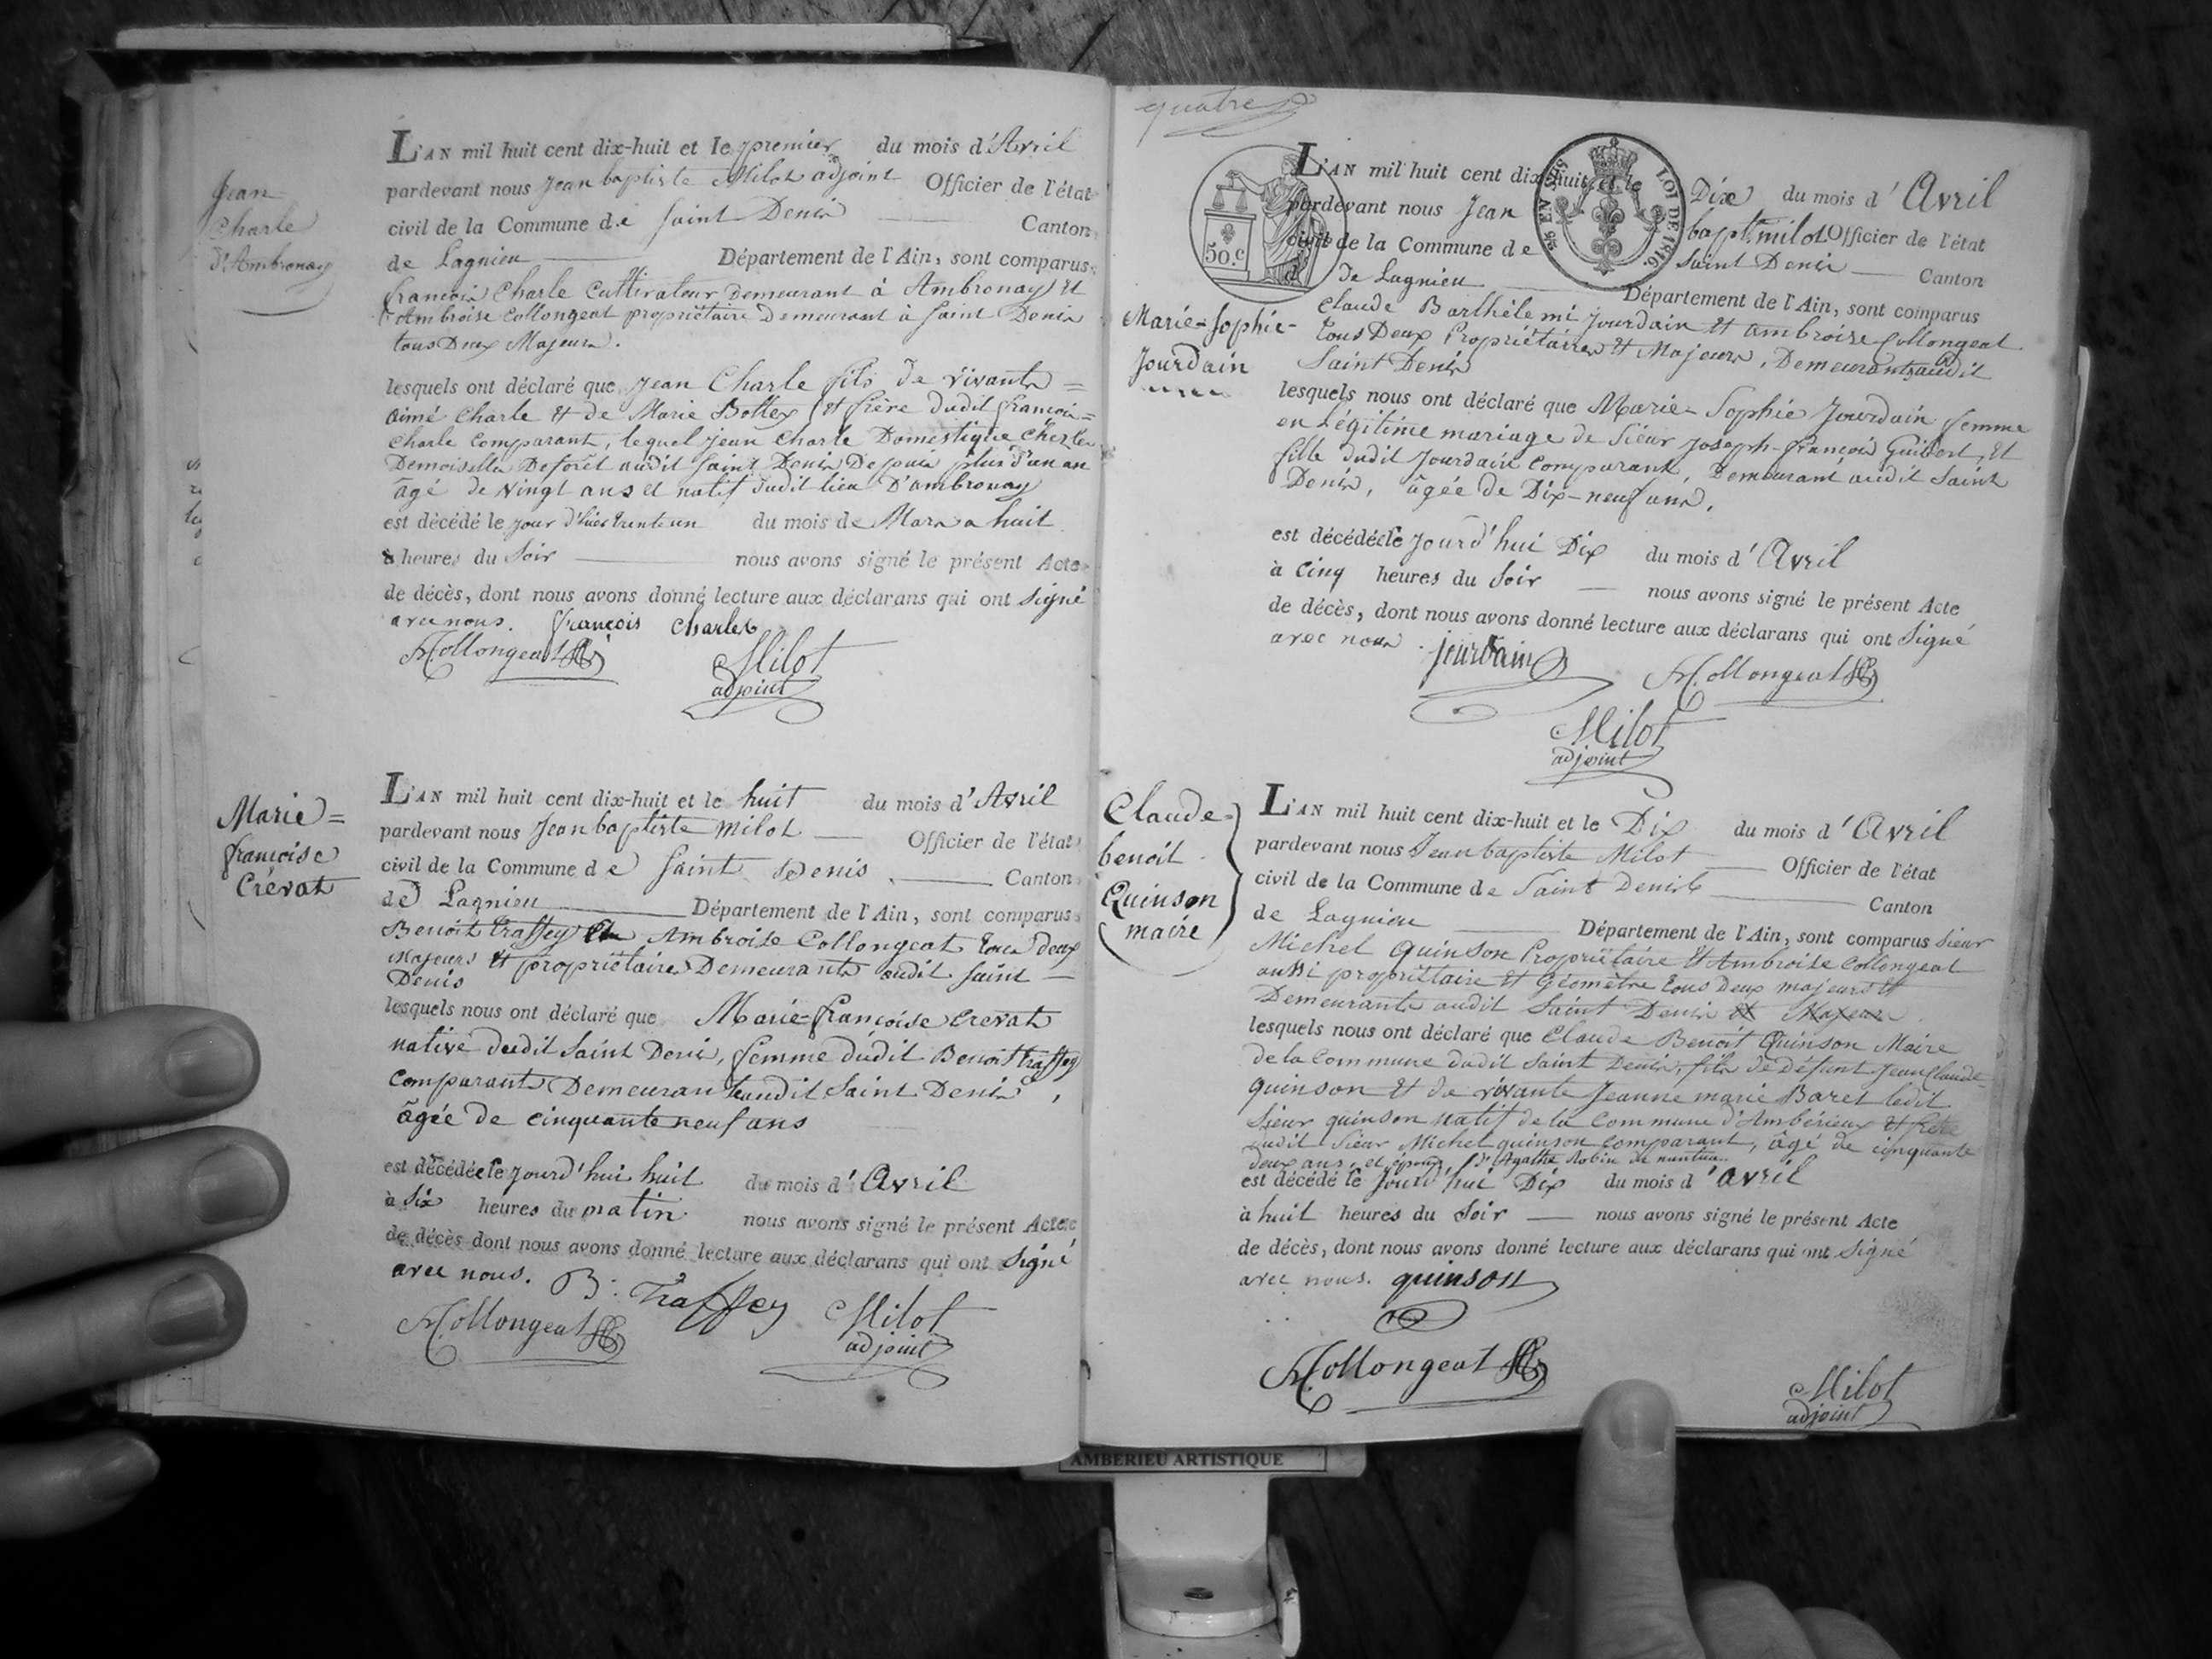 Jean
Charle
d'Ambronay
L'AN mil huit cent dix-huit et le premier du mois d'Avril
pardevant nous Jean baptiste Milot adjoint Officier de l'état
civil de la Commune de Saint Denis Canton
de Lagnieu Département de l'Ain, sont comparus
françois Charle Cultivateur Demeurant à Ambronay Et
Ambroise Collongeat propriétaire Demeurant à Saint Denis
tous Deux Majeurs.
lesquels ont déclaré que Jean Charle fils de vivants =
aimé Charle Et de Marie Bottex Et frère dudit françois =
Charle Comparant, lequel Jean Charle Domestique Chez les
Demoiselles Deforêt audit Saint Denis Depuis plus d'un an
âgé de Vingt ans et natif dudit lieu D'ambronay
est décédé le jour d'hier trente un du mois de Mars a huit
heures du Soir nous avons signé le présent Acte
de décès, dont nous avons donné lecture aux déclarans qui ont Signé
avec nous. françois Charles
A. Collongeat Milot
adjoint
Marie =
françoise
Crévat
L'AN mil huit cent dix-huit et le huit du mois d'Avril
pardevant nous Jean baptiste Milot Officier de l'état
civil de la Commune de Saint Denis Canton
de Lagnieu Département de l'Ain, sont comparus
Benoit traffey Et Ambroise Collongeat tous deux
Majeurs Et propriétaires Demeurants audit Saint
Denis
lesquels nous ont déclaré que Marie=françoise Crevat
native dudit Saint Denis, femme dudit Benoit traffey
Comparant Demeurante audit Saint Denis,
âgée de cinquante neuf ans
est décédée le jourd'hui huit du mois d'Avril
à Six heures du matin nous avons signé le présent Acte
de décès dont nous avons donné lecture aux déclarans qui ont Signé
avec nous. B. Traffey
A. Collongeat Milot
adjoint
quatre
50.c
EN SUS
LOI DE 1816.
L'AN mil huit cent dix-huit et le Dix du mois d'Avril
pardevant nous Jean bapt. milot Officier de l'état
civil de la Commune de Saint Denis Canton
de Lagnieu Département de l'Ain, sont comparus
Marie-Sophie-
Jourdain
Claude Barthélemi Jourdain Et Ambroise Collongeat
tous Deux Propriétaires Et Majeurs, Demeurants audit
Saint Denis
lesquels nous ont déclaré que Marie-Sophie Jourdain femme
en Légitime mariage de Siéur Joseph-françois Guibert, Et
fille dudit Jourdain Comparant, Demeurant audit Saint
Denis, âgée de Dix-neuf ans.
est décédée le jourd'hui Dix du mois d'Avril
à Cinq heures du Soir nous avons signé le présent Acte
de décès, dont nous avons donné lecture aux déclarans qui ont Signé
avec nous. jourdain
A. Collongeat
Milot
adjoint
Claude-
benoit
Quinson
maire
L'AN mil huit cent dix-huit et le Dix du mois d'Avril
pardevant nous Jean baptiste Milot Officier de l'état
civil de la Commune de Saint Denis Canton
de Lagnieu Département de l'Ain, sont comparus Sieur
Michel Quinson Propriétaire Et Ambroise Collongeat
aussi propriétaire Et Géomètre tous Deux majeurs Et
Demeurants audit Saint Denis Et Majeurs
lesquels nous ont déclaré que Claude Benoit Quinson Maire
de la Commune dudit Saint Denis, fils de Défunt Jean Claude
quinson Et de vivante Jeanne marie Baret ledit
Sieur quinson natif de la Commune d'Ambérieux Et frère
dudit Siéur Michel quinson Comparant, âgé de cinquante
deux ans, et époux d'Agathe Robin de nantua
est décédé le jourd'hui Dix du mois d'Avril
à huit heures du Soir nous avons signé le présent Acte
de décès, dont nous avons donné lecture aux déclarans qui ont Signé
avec nous. quinson
A. Collongeat Milot
adjoint
AMBERIEU ARTISTIQUE